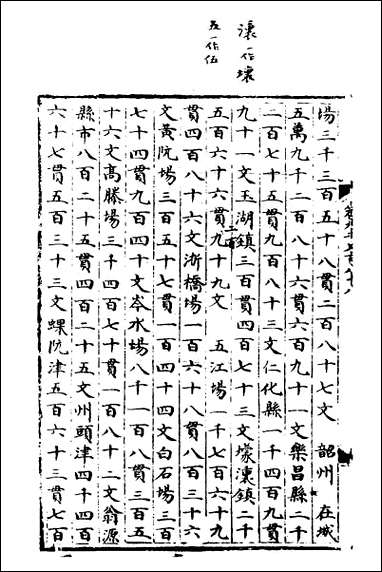 瀼一作壤
五一作伍
場三千三百五十八貫二百八十七文　韶州　在城
五萬九千二百八十六貫六百九十一文樂昌縣二千
二百七十五貫九百八十三文仁化縣一千四百九貫
九十一文玉湖鎮三百貫四百七十三文瀼鎮二千
五百六十六貫二百九十九文　五江場一千七百六十九
貫四百八十六文浙橋場一百六十八貫八百三十六
文黃阬場三百五十七貫一百四十四文白石場三百
七十四貫九百四十文岑水場八千一百八貫三百五
十六文高勝場三千四百七十貫一百八十二文翁源
縣市八百二十五貫四百二十五文州頭津四千四百
六十七貫五百三十三文螺阬津五百六十三貫七百